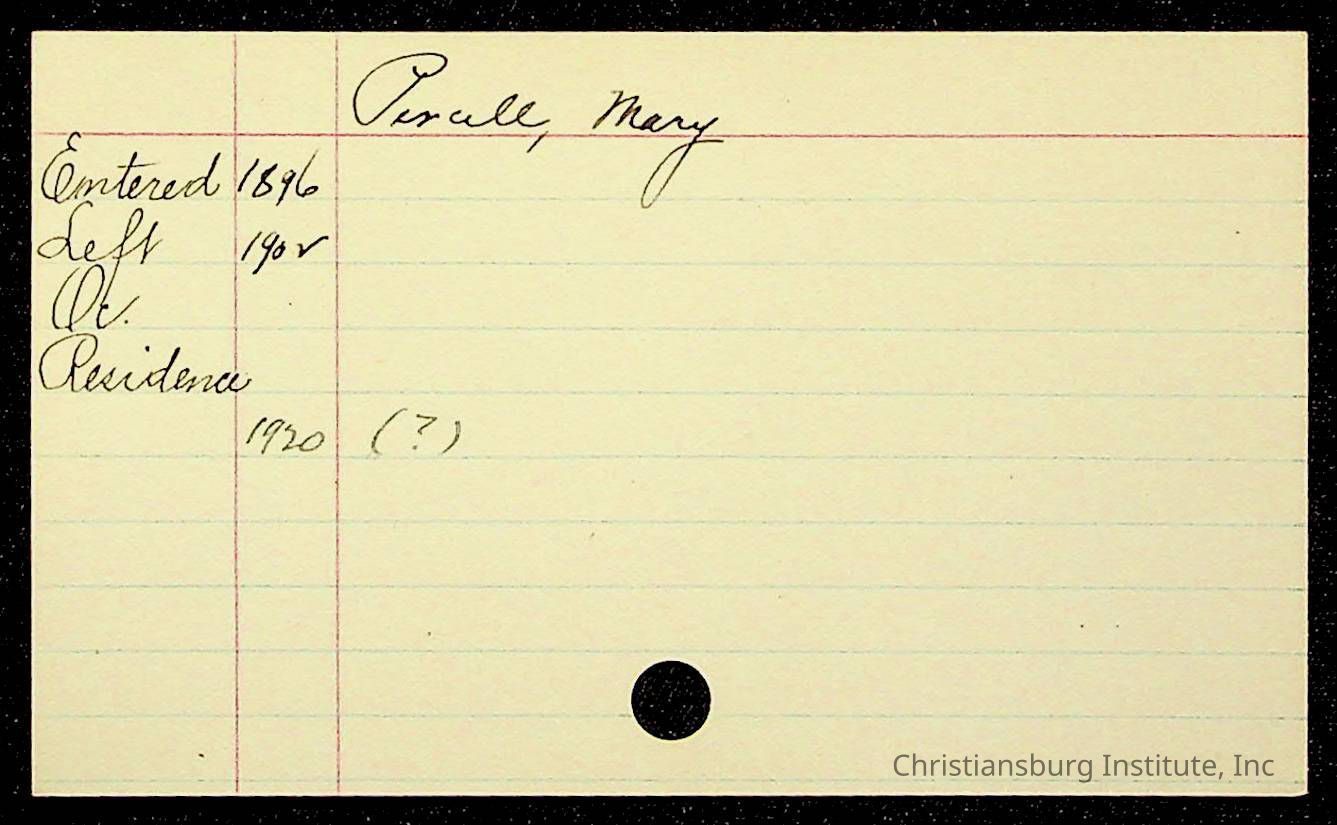 Percell, Mary
Entered 1896
Left 1902
Oc.
Residence
1920 (?)
Christiansburg Institute, Inc